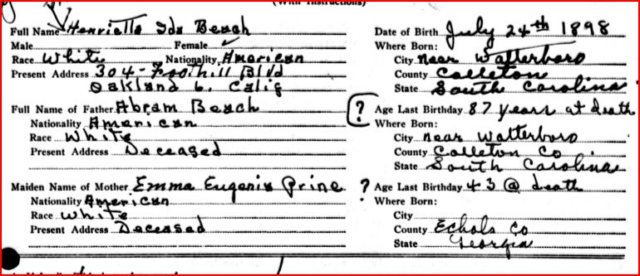 (With Instructions)
Full Name Henrietta Ida Beach Date of Birth July 24th 1898
Male Female ✓ Where Born:
Race White Nationality American City near Walterboro
Present Address 304-Foothill Blvd County Colleton
Oakland 6. Calif State South Carolina
Full Name of Father Abram Beach ? Age Last Birthday 87 years at death
Nationality American Where Born:
Race White City near Walterboro
Present Address Deceased County Colleton Co.
State South Carolina
Maiden Name of Mother Emma Eugenia Prine ? Age Last Birthday 43 @ death
Nationality American Where Born:
Race White City
Present Address Deceased County Echols Co
State Georgia